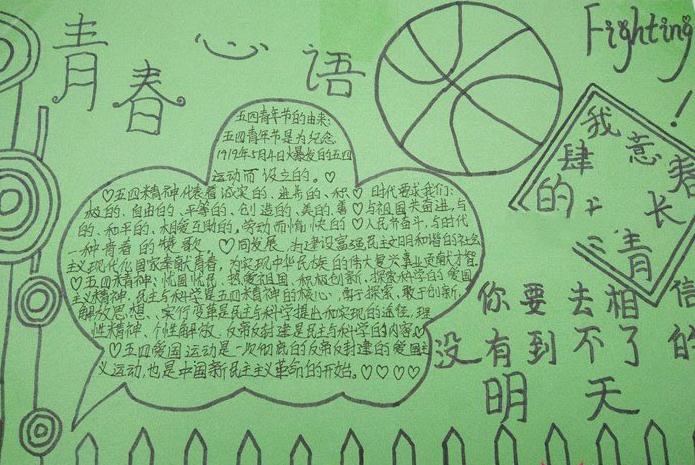 青春心语
Fighting!
五四青年节的由来:
五四青年节是为纪念
1919年5月4日爆发的五四
运动而设立的。
♡五四精神代表着诚实的、进步的、积♡时代要求我们:
极的、自由的、平等的、创造的、美的、善♡与祖国共奋进,与
的、和平的、相爱互助的。劳动而愉快的♡人民齐奋斗,与时代
一种青春的赞歌。♡同发展,为建设富强民主文明和谐的社会
主义现代化国家奉献青春,为实现中华民族的伟大复兴事业贡献才智。
♡五四精神:忧国忧民、热爱祖国、积极创新、探索科学的爱国
主义精神。民主与科学是五四精神的核心,勇于探索、敢于创新、
解放思想、实行变革是民主与科学提出和实现的途径,理
性精神、个性解放、反帝反封建是民主与科学的内容♡
♡五四爱国运动是一次彻底的反帝反封建的爱国主
义运动,也是中国新民主主义革命的的开始。♡♡♡♡
我
肆意
的
长
青
你要去相信
没有到不了的
明天